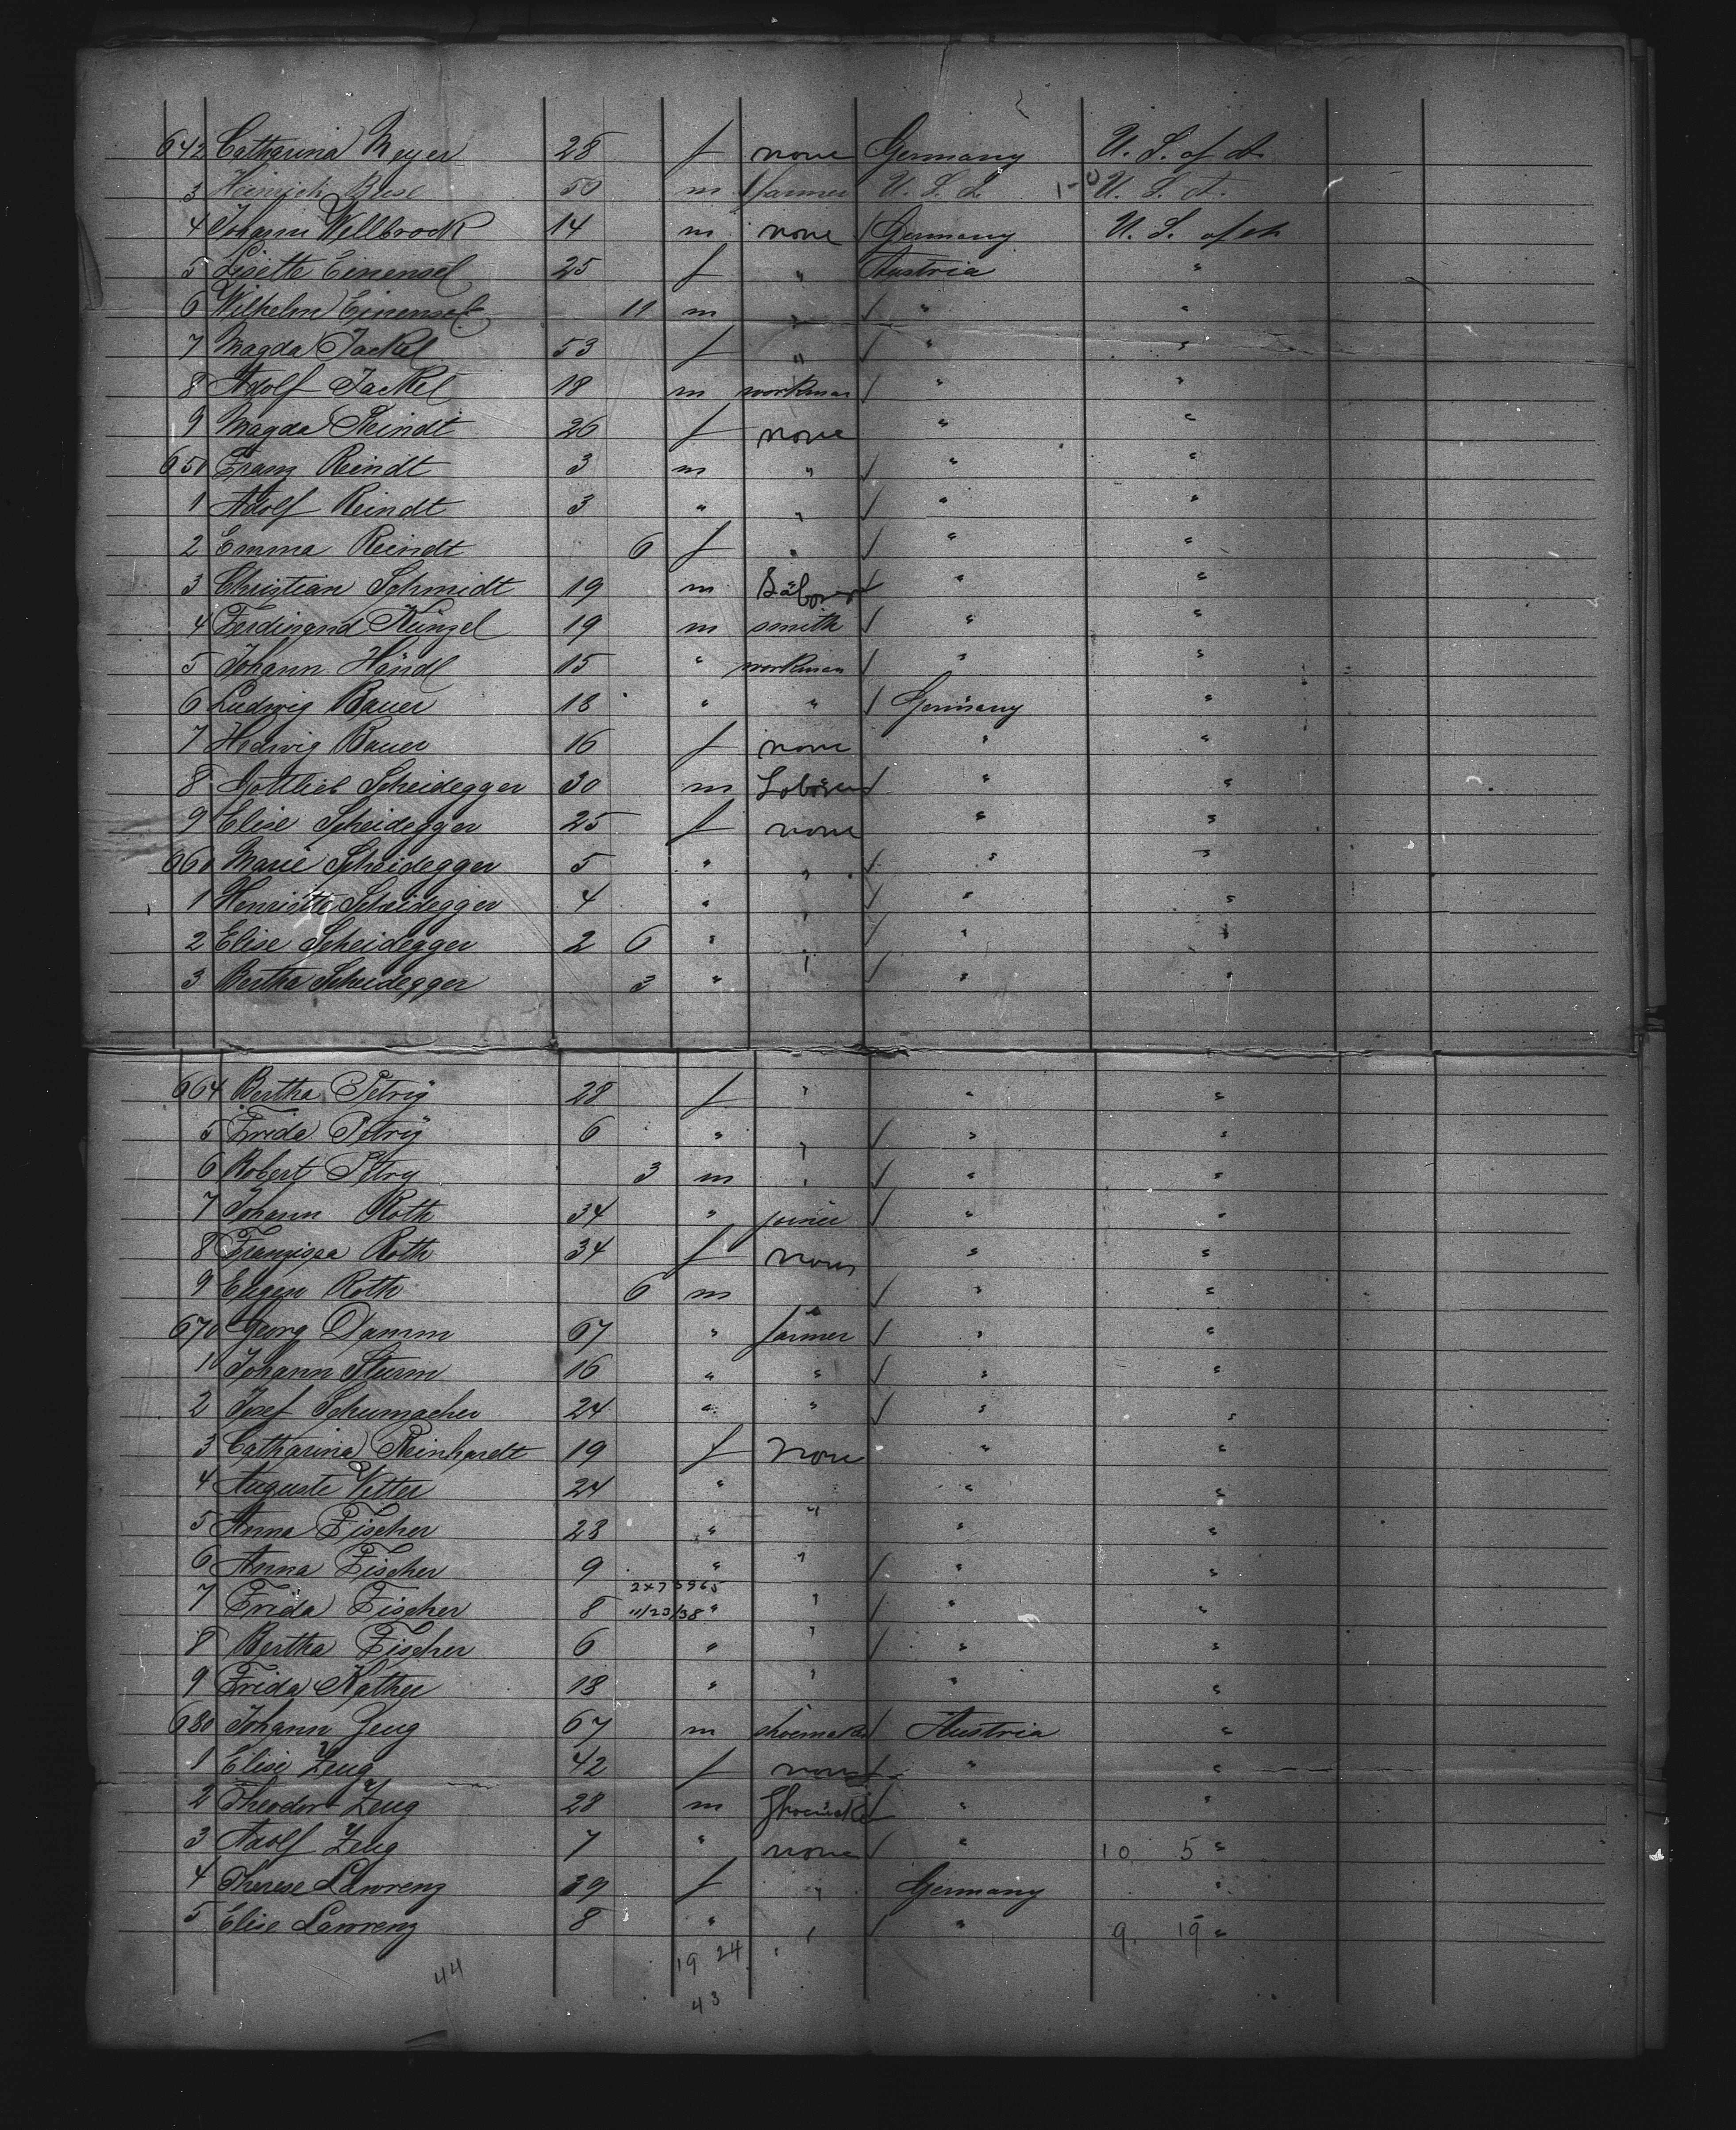 642 Catharina Meyer 28 f none Germany U. S. of A.
3 Heinrich Bese 50 m farmer U. S. A. 1-0 U. S. A.
4 Johann Wellbrock 14 m none / Germany U. S. of A
5 Lisette Einensel 25 f " Austria "
6 Wilhelm Einensel 11 m " / " "
7 Magda Jackel 53 f " / " "
8 Adolf Jackel 18 m workman / " "
9 Magda Reindt 26 f none " "
650 Franz Reindt 3 m " / " "
1 Adolf Reindt 3 " " / " "
2 Emma Reindt 6 f " / " "
3 Christian Schmidt 19 m / " "
4 Ferdinand Künzel 19 m smith / " "
5 Johann Händl 15 " workman / " "
6 Ludwig Bauer 18 " " / Germany "
7 Hedwig Bauer 16 f none " "
8 Gottlieb Scheidegger 30 m / " "
9 Elise Scheidegger 25 f none " "
660 Marie Scheidegger 5 " " / " "
1 Henriette Scheidegger 4 " " / " "
2 Elise Scheidegger 2 6 " " / " "
3 Bertha Scheidegger 3 " / " "
664 Bertha Petry 28 f " " "
5 Frida Petry 6 " " / " "
6 Robert Petry 3 m " / " "
7 Johann Roth 34 " joiner / " "
8 Franzisca Roth 34 f none " "
9 Eugen Roth 6 m " / " "
670 Georg Damm 67 " farmer / " "
1 Johann Sturm 16 " " / " "
2 Josef Schumacher 24 " " / " "
3 Catharina Reinhardt 19 f none " "
4 Auguste Vetter 24 " " "
5 Anna Fischer 28 " " " "
6 Anna Fischer 9 " " / " "
2x73965
7 Frida Fischer 8 11/23/38 " " / " "
8 Bertha Fischer 6 " " / " "
9 Frida Kather 18 " " " "
680 Johann Zeug 67 m shoemaker / Austria "
1 Elise Zeug 42 f none / " "
2 Theodor Zeug 28 m / " "
3 Adolf Zeug 7 " none / " 10 5 "
4 Therese Lawrenz 39 f " Germany "
5 Elise Lawrenz 8 " " / " 9. 19 "
19 24
44
43